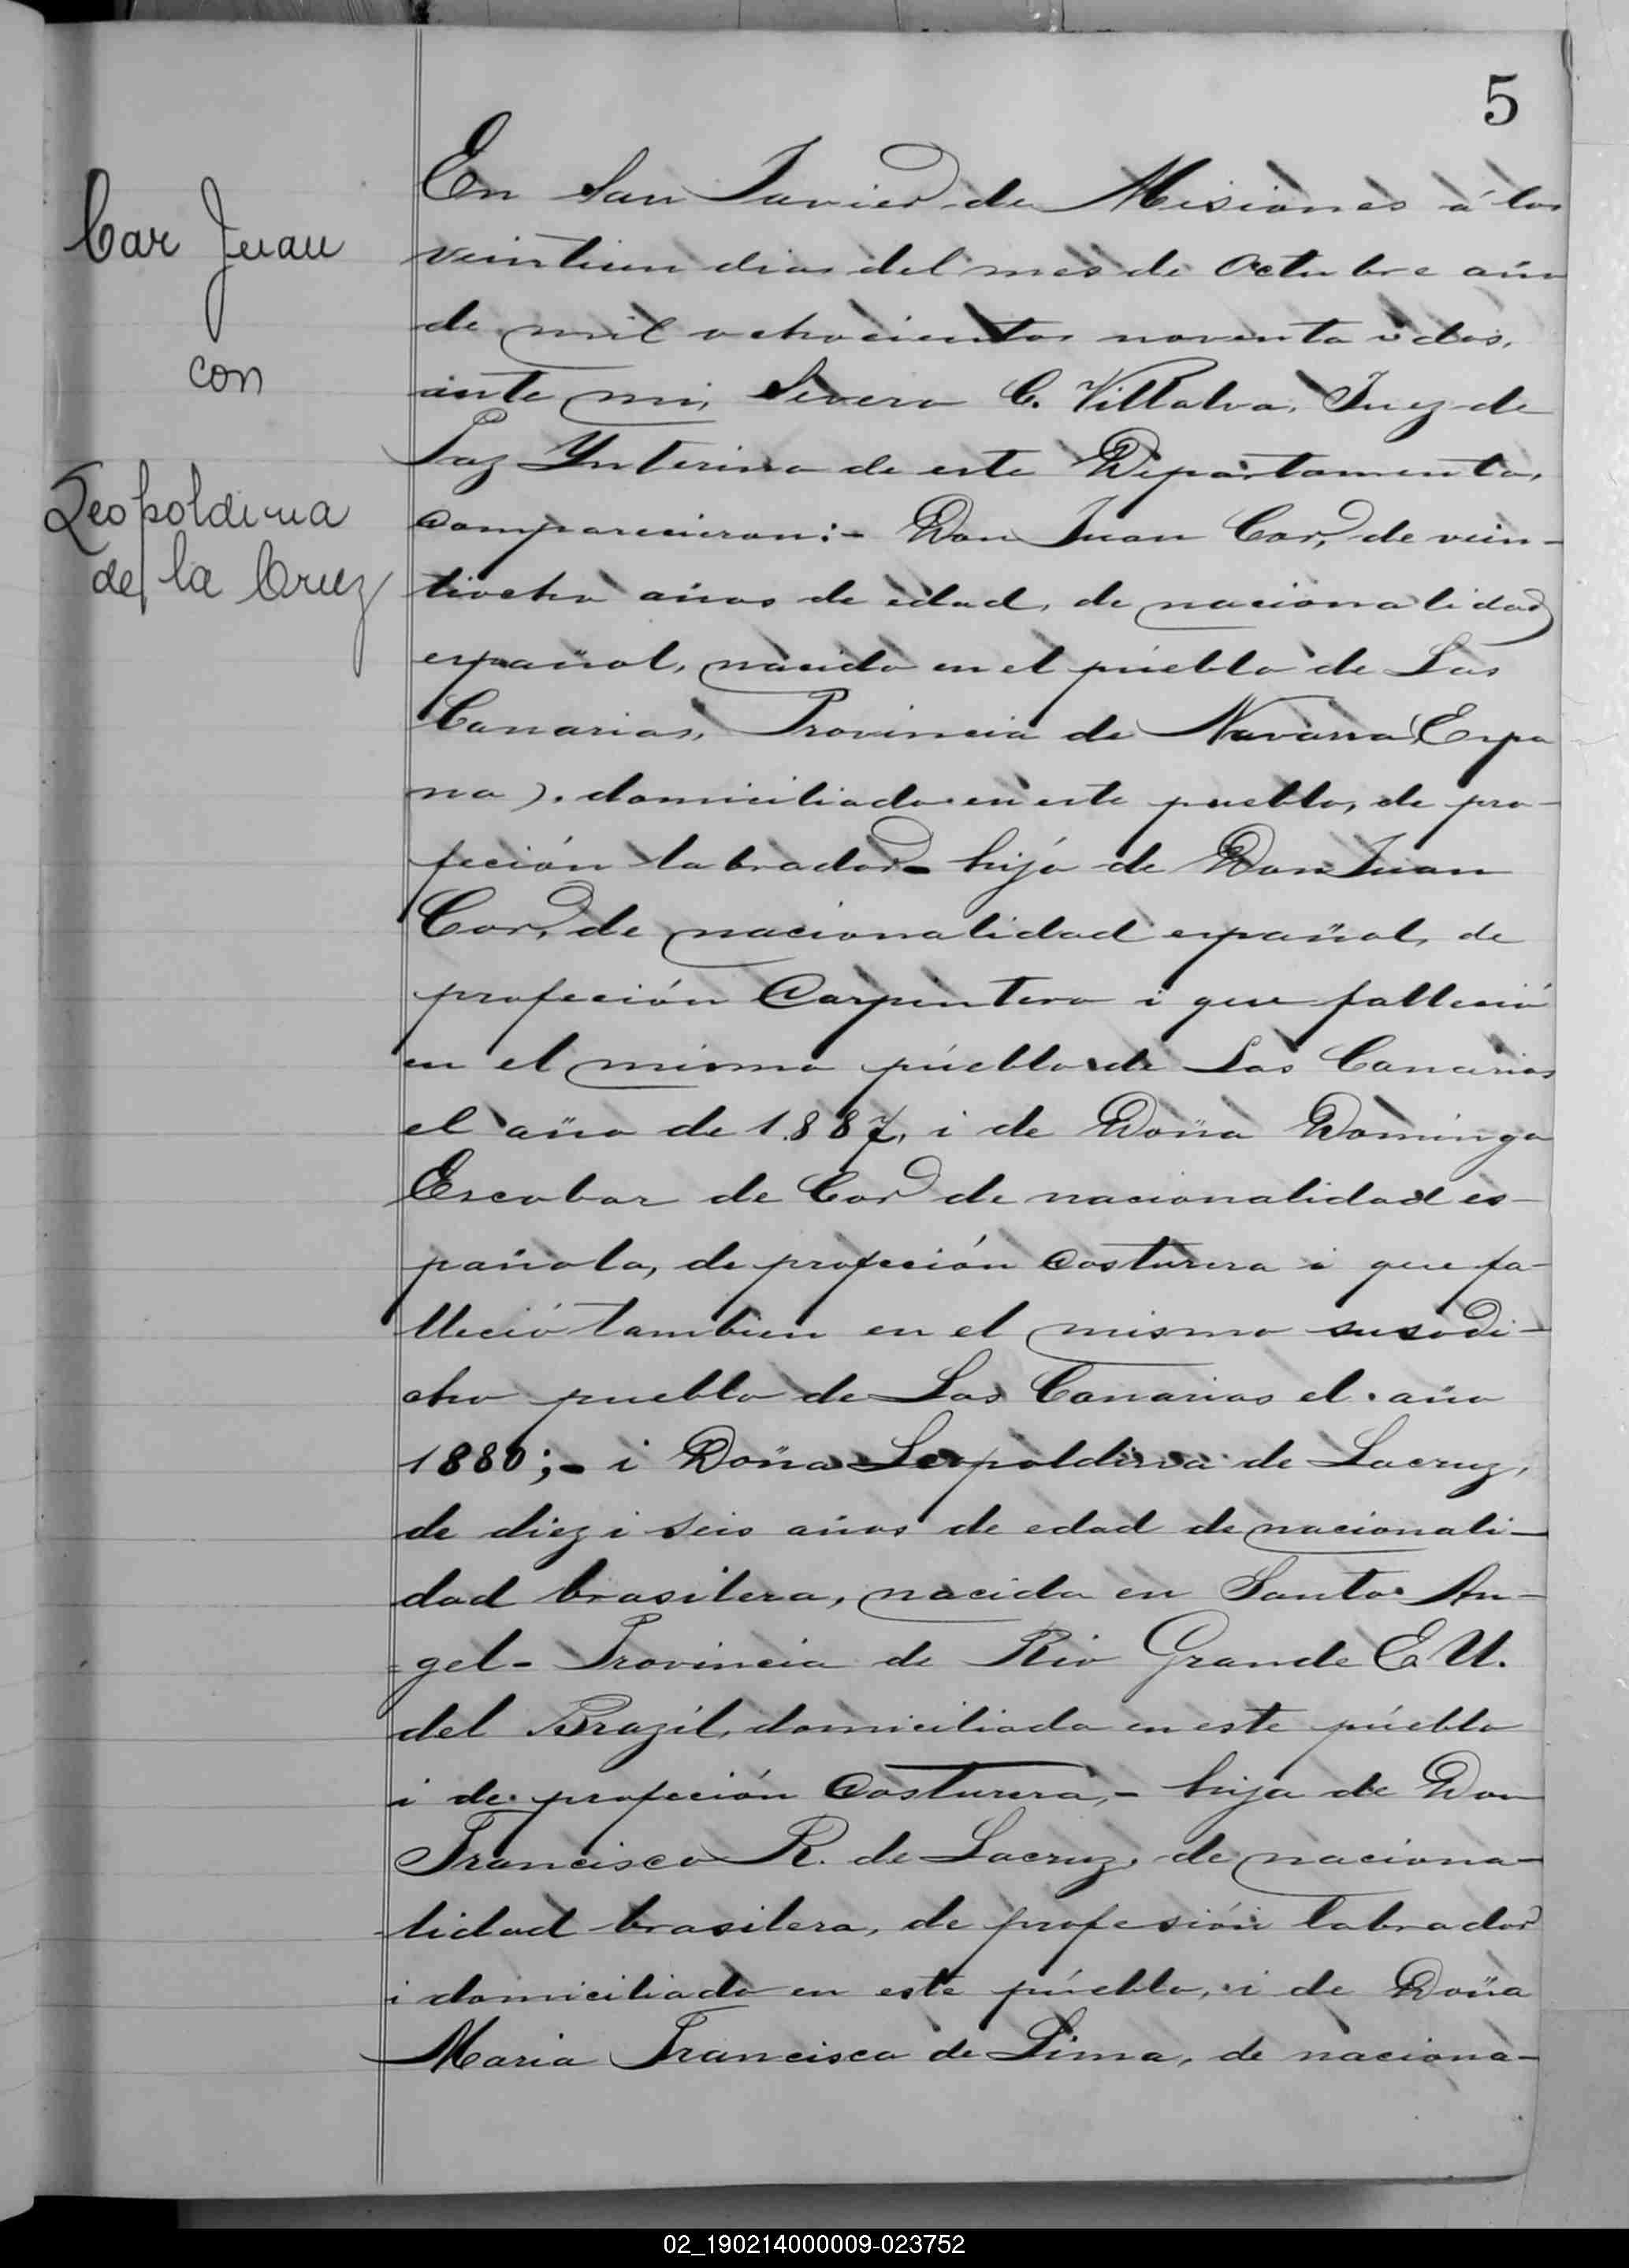 5
Car Juan
con
Leopoldina
de la Cruz
En San Javier de Misiones á los
veintiun dias del mes de Octubre año
de mil ochocientos noventa i dos,
ante mi, Severo C. Villalva, Juez de
Paz Ynterino de este Departamento,
comparecieron:- Don Juan Cor, de vein-
tiocho años de edad, de nacionalidad
español, nacido en el pueblo de Las
Canarias, Provincia de Navarra (Espa
na). domiciliado en este pueblo, de pro-
feción labrador- hijo de Don Juan
Cor, de nacionalidad español, de
profeción Carpintero i que falleció
en el mismo pueblo de Las Canarias
el año de 1.887, i de Doña Dominga
Escobar de Cor de nacionalidad es-
pañola, de profeción costurera i que fa-
lleció tambien en el mismo susodi-
cho pueblo de Las Canarias el año
1880;- i Doña Leopoldina de Lacruz,
de diez i seis años de edad de nacionali-
dad brasilera, nacida en Santo An-
gel- Provincia de Rio Grande E U.
del Brazil, domiciliada en este pueblo
i de profeción Costurera,- hija de Don
Francisco R. de Lacruz, de naciona-
lidad brasilera, de profesión labrador
i domiciliado en este pueblo, i de Doña
Maria Francisca de Lima, de naciona-
02_190214000009-023752